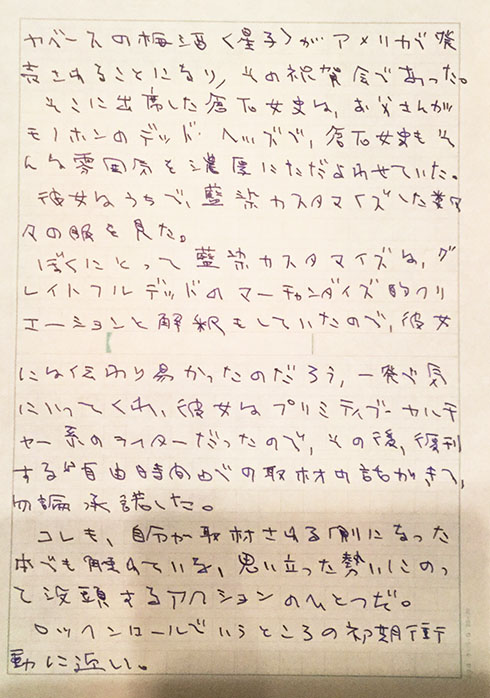 ヤベースの梅酒〈星子〉がアメリカで発
売されることになり、その祝賀会であった。
そこに出席した倉石女史は、お父さんが
モノホンのデッド・ヘッズで、倉石女史もそ
んな雰囲気を濃厚にただよわせていた。
彼女はうちで、藍染カスタマイズした数々
の服を見た。
ぼくにとって藍染カスタマイズは、グ
レイトフルデッドのマーチャンダイズ的クリ
エーションと解釈もしていたので、彼女
には伝わり易かったのだろう、一発で気
にいってくれ、彼女はプリミティブ・カルチ
ャー系のライターだったので、その後、復刊
する“自由時間”での取材の話がきて、
勿論承諾した。
コレも、自分が取材される側になった
本でも触れている、思い立った勢いにのっ
て没頭するアクションのひとつだ。
ロッケンロールでいうところの初期衝
動に近い。